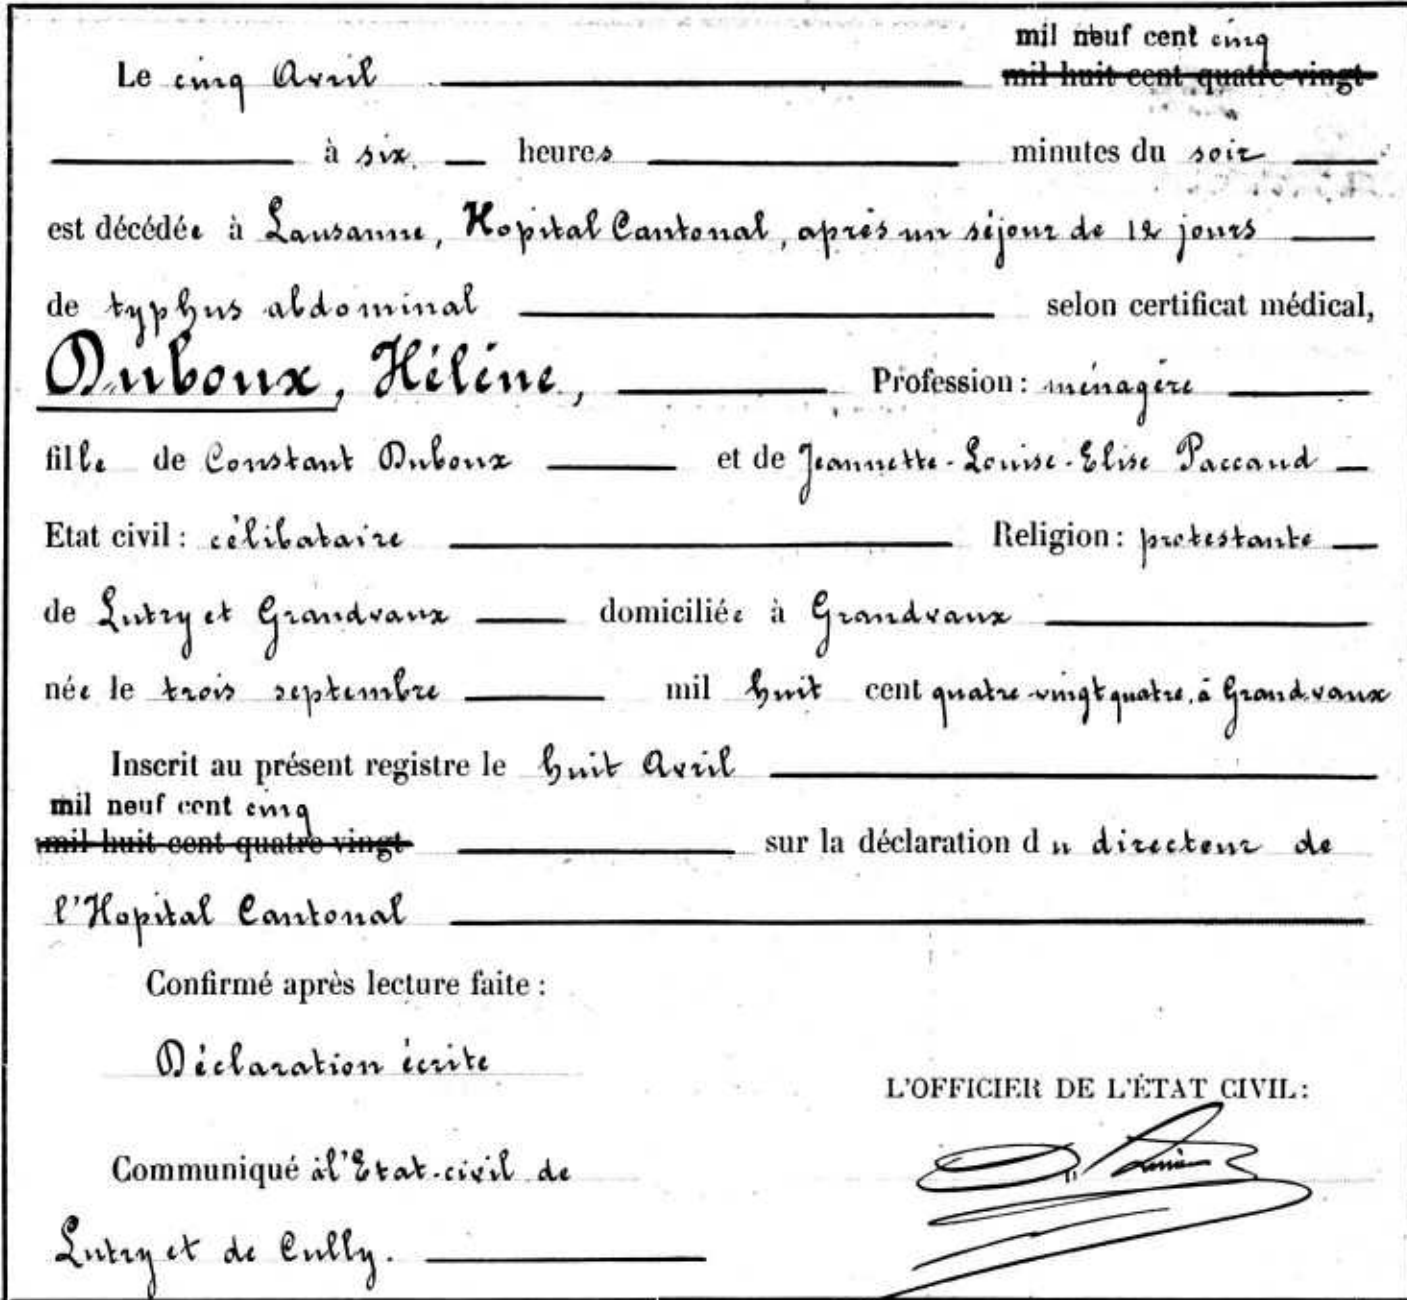 mil neuf cent cinq
Le cinq Avril mil huit cent quatre-vingt
à six heures minutes du soir
est décédée à Lausanne, Hopital Cantonal, après un séjour de 12 jours
de typhus abdominal selon certificat médical,
Duboux, Hélène, Profession: ménagère
fille de Constant Duboux et de Jeannette-Louise-Elise Paccaud
Etat civil: célibataire Religion: protestante
de Lutry et Grandvaux domiciliée à Grandvaux
née le trois septembre mil huit cent quatre-vingt quatre, à Grandvaux
Inscrit au présent registre le huit Avril
mil neuf cent cinq
mil huit cent quatre vingt sur la déclaration du directeur de
l'Hopital Cantonal
Confirmé après lecture faite:
Déclaration écrite
L'OFFICIER DE L'ÉTAT CIVIL:
Communiqué à l'Etat-civil de
Lutry et de Cully.